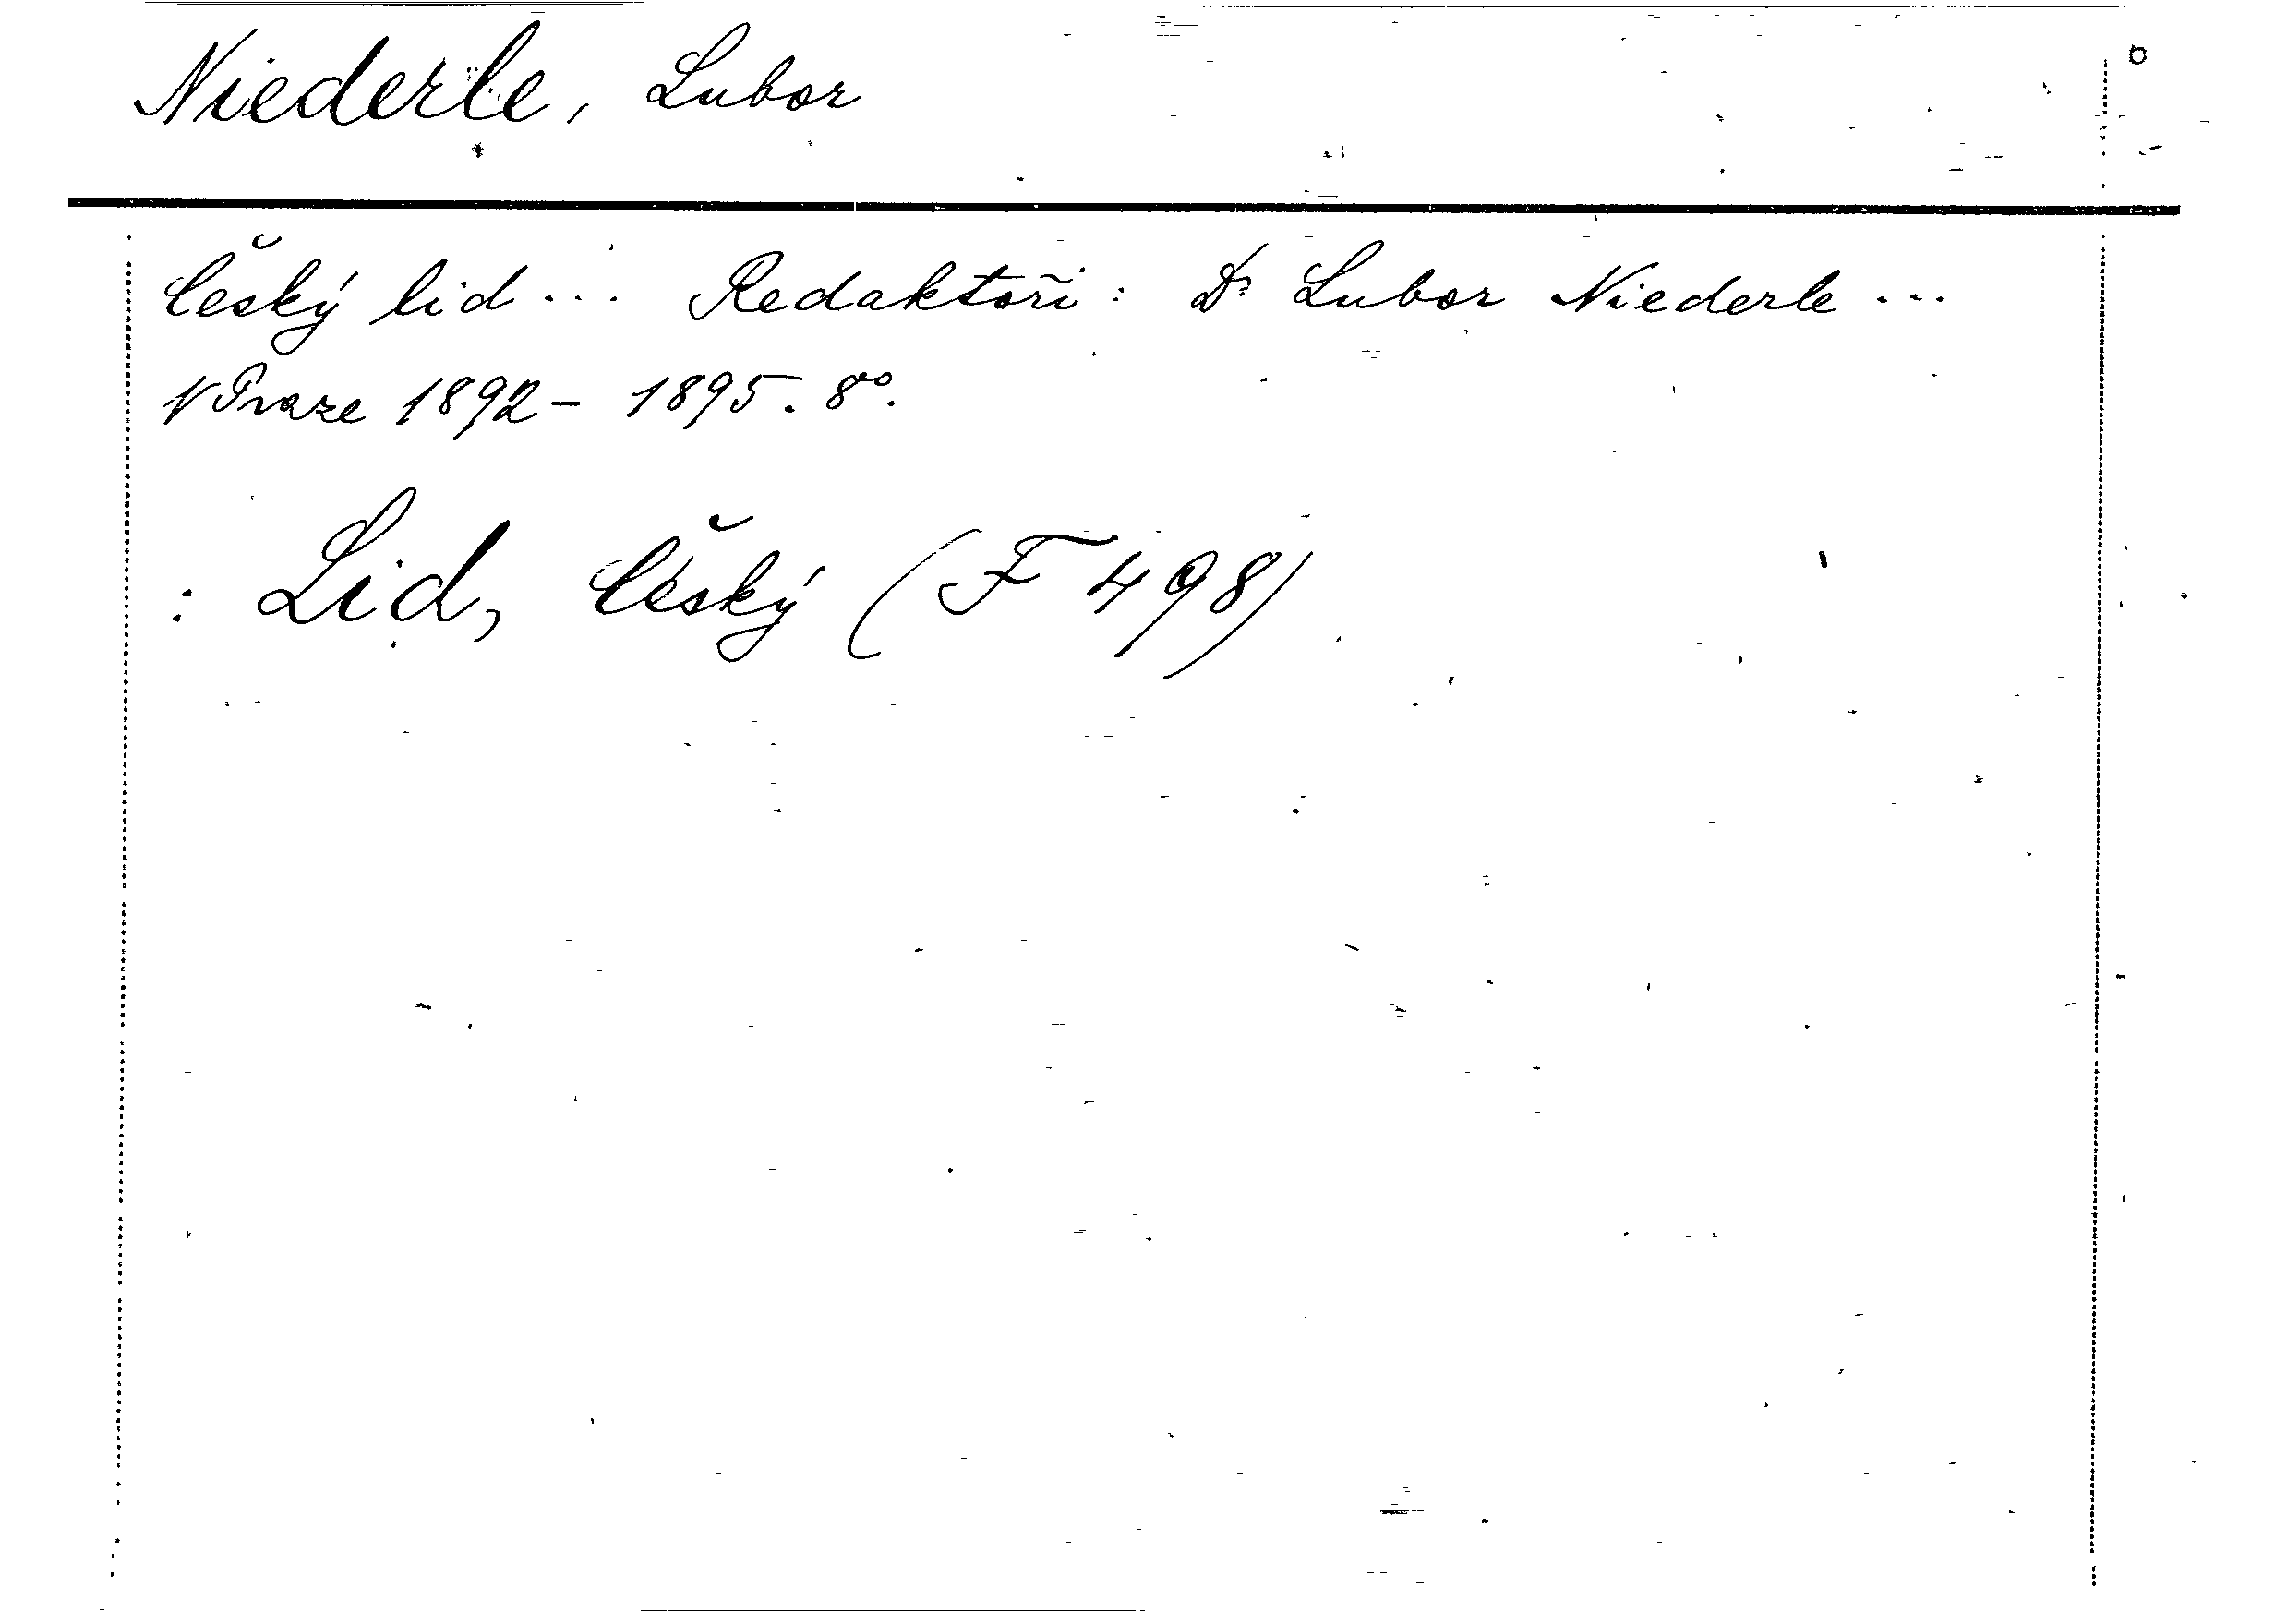 Niederle, Lubor
Český lid... Redaktoři: Dr Lubor Niederle...
V Praze 1892 - 1895. 8vo.
: Lid, Český (F 498)